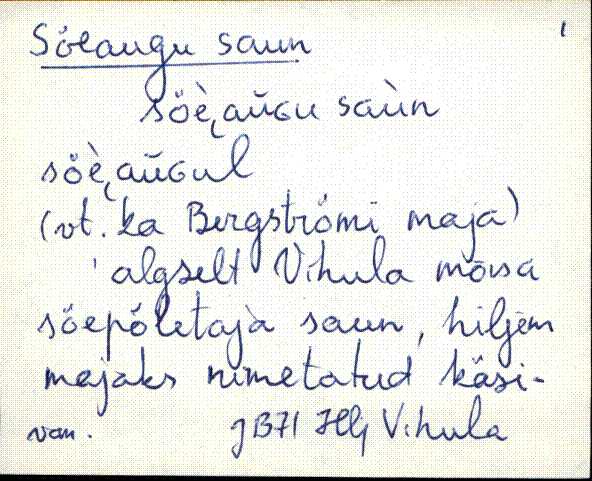 Söeaugu saun 1
söè̜ aŭGu saùn
söè̜ aŭGul
(vt. ka Bergströmi maja)
algselt Vihula mõisa
söepõletaja saun, hiljem
majaks nimetatud käsi-
van. JB71 Hlj Vihula